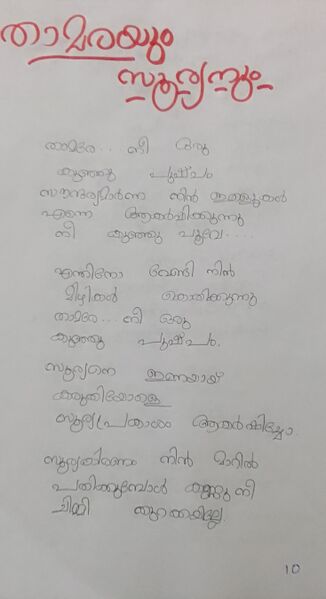 താമരയും
സൂര്യനും
താമരേ... നീ ഒരു
കുഞ്ഞു പുഷ്പം
സൗന്ദര്യമാർന്ന നിൻ ഇതളുകൾ
എന്നെ ആകർഷിക്കുന്നു
നീ കുഞ്ഞു പൂവേ....
എന്തിനോ വേണ്ടി നിൻ
മിഴികൾ തൈതിക്കുന്നു
താമരേ... നീ ഒരു
കുഞ്ഞു പുഷ്പം.
സൂര്യനെ ഇണയായ്
കരുതിയോളെ
സൂര്യപ്രകാശം ആകർഷിച്ചോ..
സൂര്യകിരണം നിൻ മാറിൽ
പതിക്കുമ്പോൾ കണ്ണു നീ
ചിമ്മി തുറക്കയില്ലേ.
10